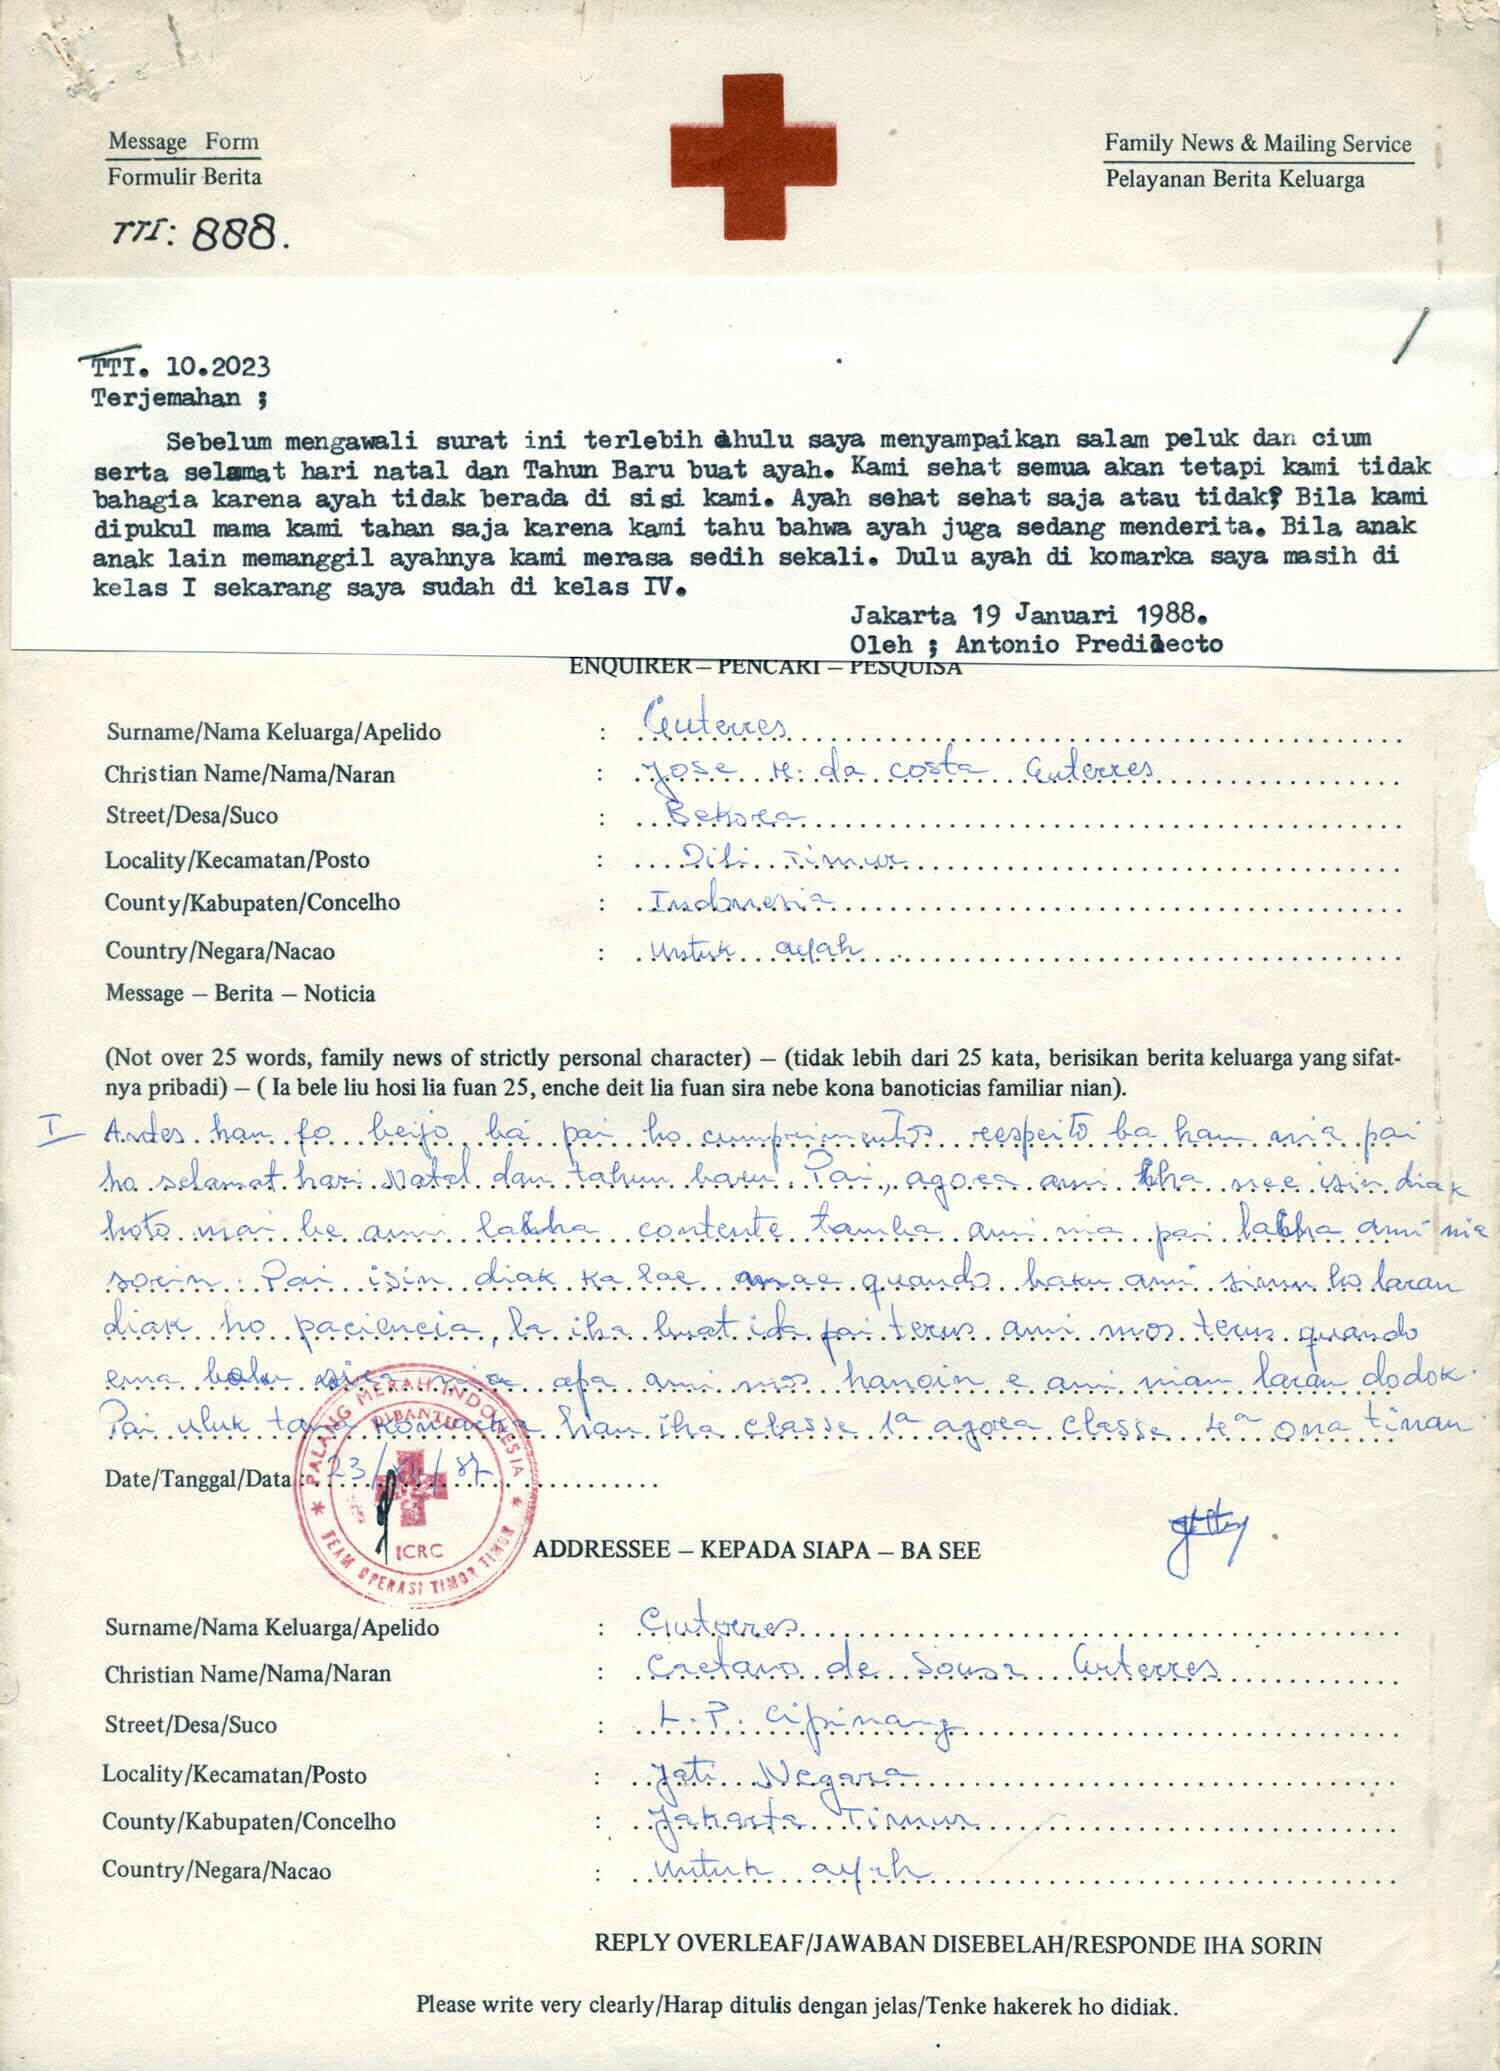 Message Form
Formulir Berita
Family News & Mailing Service
Pelayanan Berita Keluarga
TTI: 888.
TTI. 10.2023
Terjemahan ;
Sebelum mengawali surat ini terlebih dhulu saya menyampaikan salam peluk dan cium
serta selamat hari natal dan Tahun Baru buat ayah. Kami sehat semua akan tetapi kami tidak
bahagia karena ayah tidak berada di sisi kami. Ayah sehat sehat saja atau tidak? Bila kami
dipukul mama kami tahan saja karena kami tahu bahwa ayah juga sedang menderita. Bila anak
anak lain memanggil ayahnya kami merasa sedih sekali. Dulu ayah di komarka saya masih di
kelas I sekarang saya sudah di kelas IV.
Jakarta 19 Januari 1988.
Oleh ; Antonio Predilecto
ENQUIRER – PENCARI – PESQUISA
Surname/Nama Keluarga/Apelido : Guterres
Christian Name/Nama/Naran : Jose M. da costa Guterres
Street/Desa/Suco : Bekora
Locality/Kecamatan/Posto : Dili Timur
County/Kabupaten/Concelho : Indonesia
Country/Negara/Nacao : Untuk ayah
Message – Berita – Noticia
(Not over 25 words, family news of strictly personal character) – (tidak lebih dari 25 kata, berisikan berita keluarga yang sifat-
nya pribadi) – ( Ia bele liu hosi lia fuan 25, enche deit lia fuan sira nebe kona banoticias familiar nian).
I Antes hau fo beijo ba pai ho cumprimentos respeito ba hau nia pai
ho selamat hari Natal dan tahun baru. Pai, agora ami iha nee isin diak
hoto mai be ami laiha contente tamba ami nia pai laiha ami nia
sorin. Pai isin diak ka lae mae quando baku ami simu ho laran
diak ho paciencia, la iha buat ida pai terus ami mos terus quando
ema bolu nia apa ami mos hanoin e ami nian laran dodok.
Pai uluk tama Komarka hau iha classe 1ª agora classe 4ª ona tinan
Date/Tanggal/Data : 23/XII/87
PALANG MERAH INDONESIA
DIBANTU
ICRC
TEAM OPERASI TIMOR TIMUR
ADDRESSEE – KEPADA SIAPA – BA SEE
Surname/Nama Keluarga/Apelido : Guterres
Christian Name/Nama/Naran : Caetano de Sousa Guterres
Street/Desa/Suco : L.P. Cipinang
Locality/Kecamatan/Posto : Jati Negara
County/Kabupaten/Concelho : Jakarta Timur
Country/Negara/Nacao : Untuk ayah
REPLY OVERLEAF/JAWABAN DISEBELAH/RESPONDE IHA SORIN
Please write very clearly/Harap ditulis dengan jelas/Tenke hakerek ho didiak.